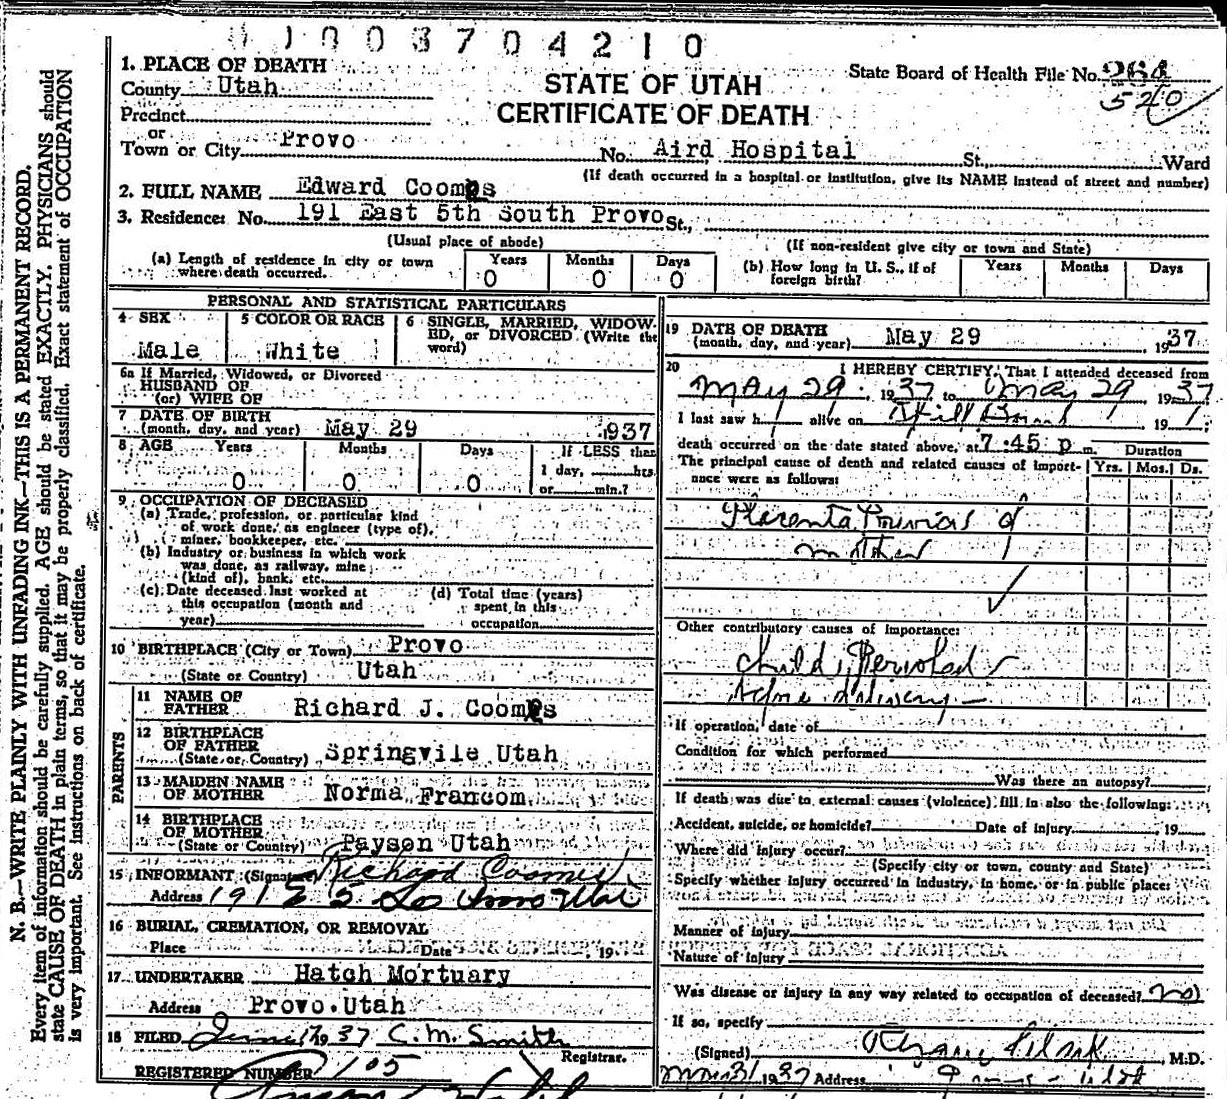 1003704210
1. PLACE OF DEATH
County Utah
Precinct
or
Town or City Provo
STATE OF UTAH
CERTIFICATE OF DEATH
State Board of Health File No.
520
No. Aird Hospital St. Ward
(If death occurred in a hospital or institution, give its NAME instead of street and number)
2. FULL NAME Edward Coombs
3. Residence: No. 191 East 5th South Provo St.,
(Usual place of abode)
(If non-resident give city or town and State)
(a) Length of residence in city or town where death occurred. Years 0 Months 0 Days 0
(b) How long in U. S., if of foreign birth? Years Months Days
PERSONAL AND STATISTICAL PARTICULARS
4 SEX Male
5 COLOR OR RACE White
6 SINGLE, MARRIED, WIDOW-
ED, or DIVORCED (Write the
word)
6a If Married, Widowed, or Divorced
HUSBAND OF
(or) WIFE OF
7 DATE OF BIRTH
(month, day, and year) May 29 1937
8 AGE Years 0 Months 0 Days 0
If LESS than
1 day, hrs.
or min.?
9 OCCUPATION OF DECEASED
(a) Trade, profession, or particular kind
of work done, as engineer (type of),
miner, bookkeeper, etc.
(b) Industry or business in which work
was done, as railway, mine
(kind of), bank, etc.
(c) Date deceased last worked at
this occupation (month and
year)
(d) Total time (years)
spent in this
occupation
10 BIRTHPLACE (City or Town) Provo
(State or Country) Utah
PARENTS
11 NAME OF
FATHER Richard J. Coombs
12 BIRTHPLACE
OF FATHER
(State or Country) Springvile Utah
13 MAIDEN NAME
OF MOTHER Norma Francom
14 BIRTHPLACE
OF MOTHER
(State or Country) Payson Utah
15 INFORMANT (Signature) Richard Coombs
Address 191 E 5 So Provo Utah
16 BURIAL, CREMATION, OR REMOVAL
Place Date , 19
17 UNDERTAKER Hatch Mortuary
Address Provo.Utah
18 FILED June 1937 C. M. Smith
Registrar.
REGISTERED NUMBER 105
19 DATE OF DEATH
(month, day, and year) May 29 , 1937
20 I HEREBY CERTIFY, That I attended deceased from
May 29 1937 to May 29 1937
I last saw h alive on Still Born 19 ;
death occurred on the date stated above, at 7:45 p m.
The principal cause of death and related causes of import-
ance were as follows:
Duration
Yrs. Mos. Ds.
Placenta Previa of
mother
Other contributory causes of importance:
Child Perished
before delivery
If operation, date of
Condition for which performed
Was there an autopsy?
If death was due to external causes (violence) fill in also the following:
Accident, suicide, or homicide? Date of injury , 19
Where did injury occur?
(Specify city or town, county and State)
Specify whether injury occurred in industry, in home, or in public place:
Manner of injury
Nature of injury
Was disease or injury in any way related to occupation of deceased? no
If so, specify
(Signed) Clark M.D.
1937 Address
N. B.—WRITE PLAINLY WITH UNFADING INK—THIS IS A PERMANENT RECORD.
Every item of information should be carefully supplied. AGE should be stated EXACTLY. PHYSICIANS should
state CAUSE OF DEATH in plain terms, so that it may be properly classified. Exact statement of OCCUPATION
is very important. See instructions on back of certificate.